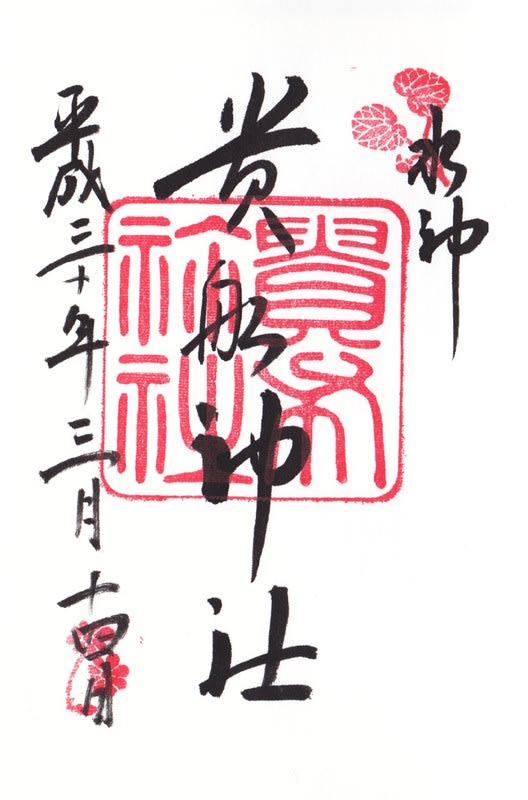 水神
貴船神社
平成三十年三月十四日